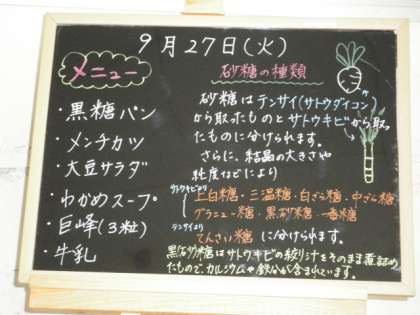 9月27日(火)
メニュー
・黒糖パン
・メンチカツ
・大豆サラダ
・わかめスープ
・巨峰(3粒)
・牛乳
砂糖の種類
砂糖はテンサイ(サトウダイコン)
から取ったものとサトウキビから取っ
たものに分けられます。
さらに、結晶の大きさや
純度などにより
サトウキビより
上白糖・三温糖・白ざら糖・中ざら糖
グラニュー糖・黒砂糖・一番糖
テンサイより
てんさい糖 に分けられます。
黒砂糖はサトウキビの絞り汁をそのまま煮詰め
たもので、カルシウムや鉄分が含まれています。